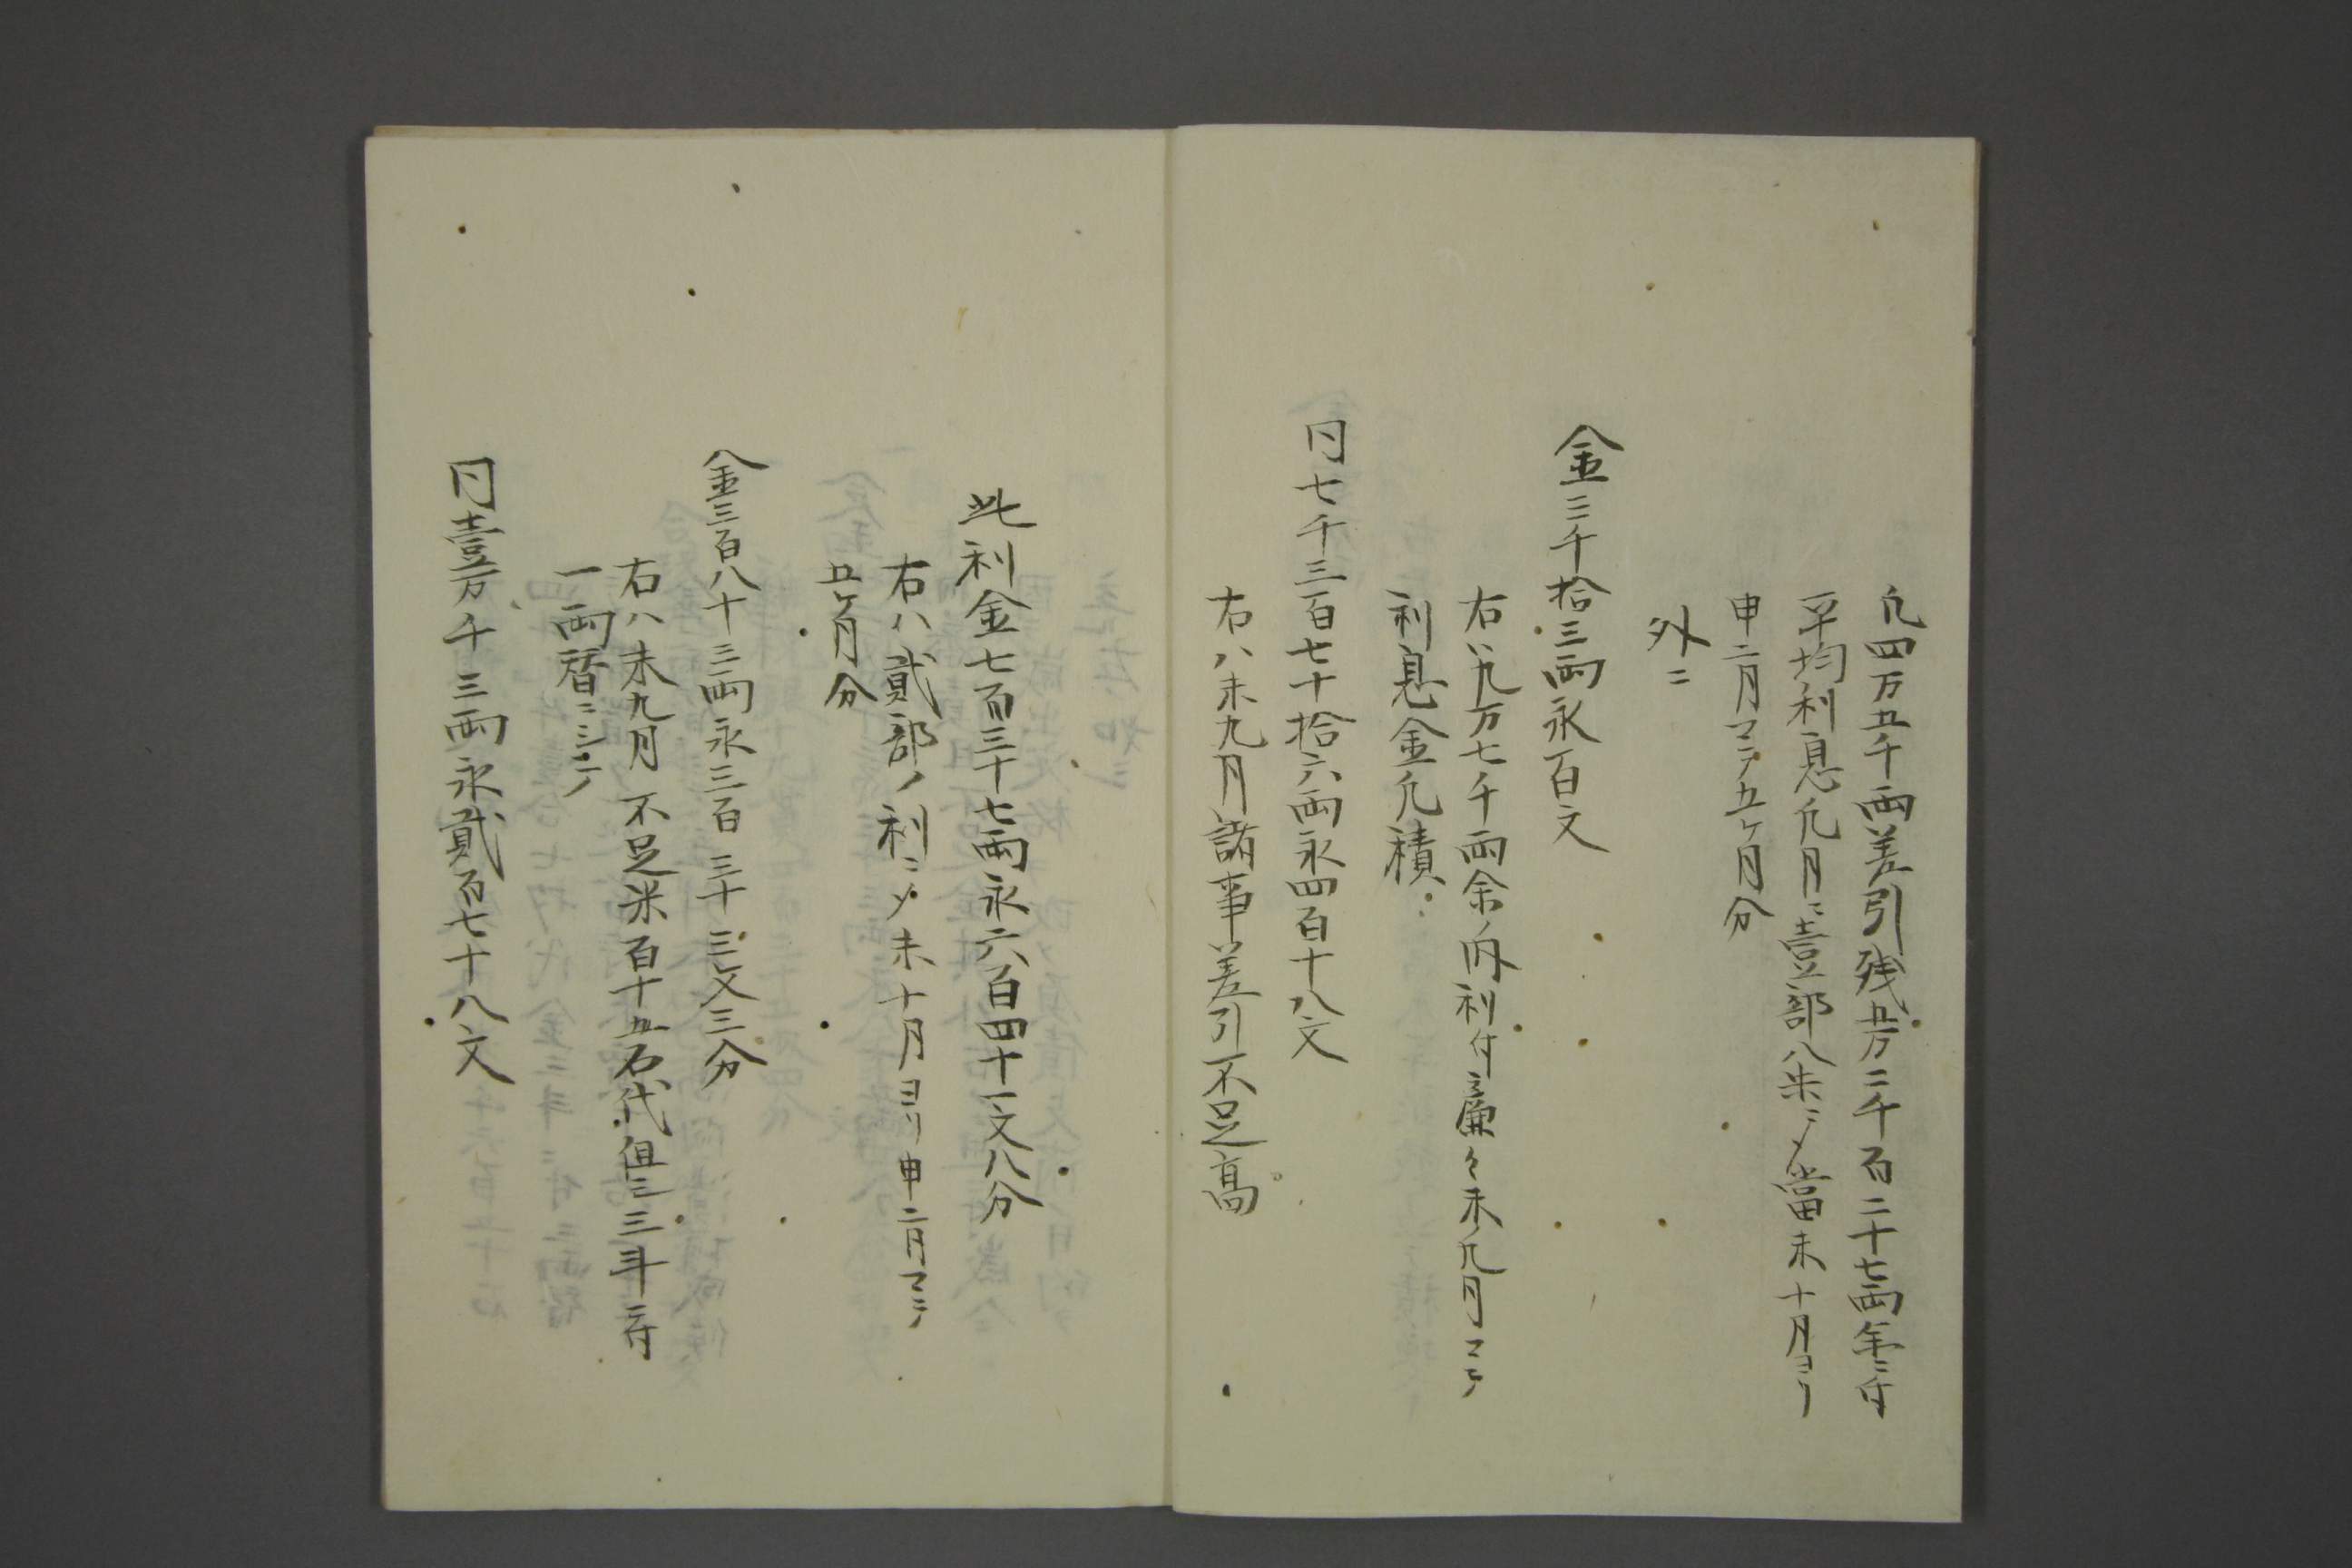 凡四万五千両差引残五万二千百二十七両年ニ付
平均利息凡月ニ壹部八朱ニ〆當未十月ヨリ
申二月マテ五ケ月分
外ニ
金二千拾三両永百文
右ハ凡万七千両余ノ内利付廉々未九月マテ
利息金凡積
〆七千三百七十拾六両永四百十八文
右ハ未九月諸事差引不足高
此利金七百三十七両永六百四十一文八分
右ハ貳部ノ利ニ〆未十月ヨリ申二月マテ
五ケ月分
金三百八十三両永三百三十三文三分
右ハ未九月不足米百十五石代但三斗ニ付
一両替ニシテ
〆壹万千三両永貳百七十八文